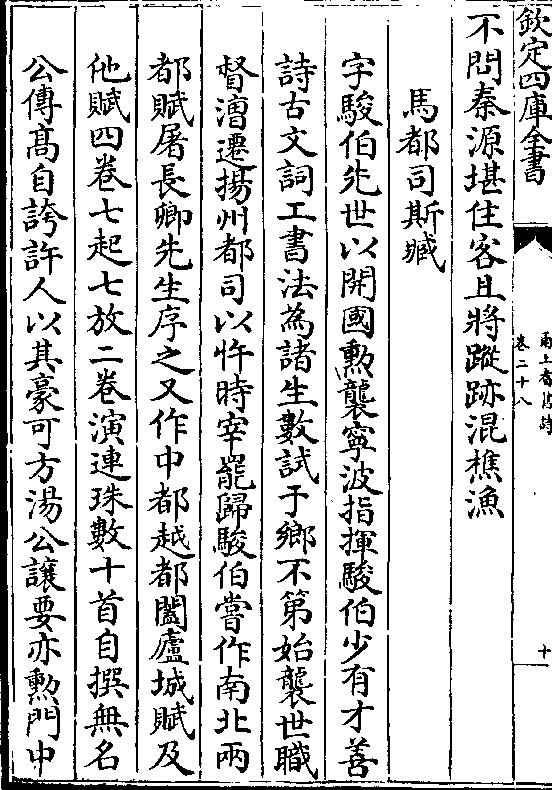 欽定四庫全書
甬上耆舊詩
卷二十八
十
不問秦源堪住客且將蹤跡混樵漁
馬都司斯臧
字駿伯先世以開國勲襲寧波指揮駿伯少有才善
詩古文詞工書法為諸生數試于鄉不第始襲世職
督漕遷揚州都司以忤時宰罷歸駿伯嘗作南北兩
都賦屠長卿先生序之又作中都越都闔廬城賦及
他賦四卷七起七放二卷演連珠數十首自撰無名
公傳髙自誇許人以其豪可方湯公讓要亦勲門中